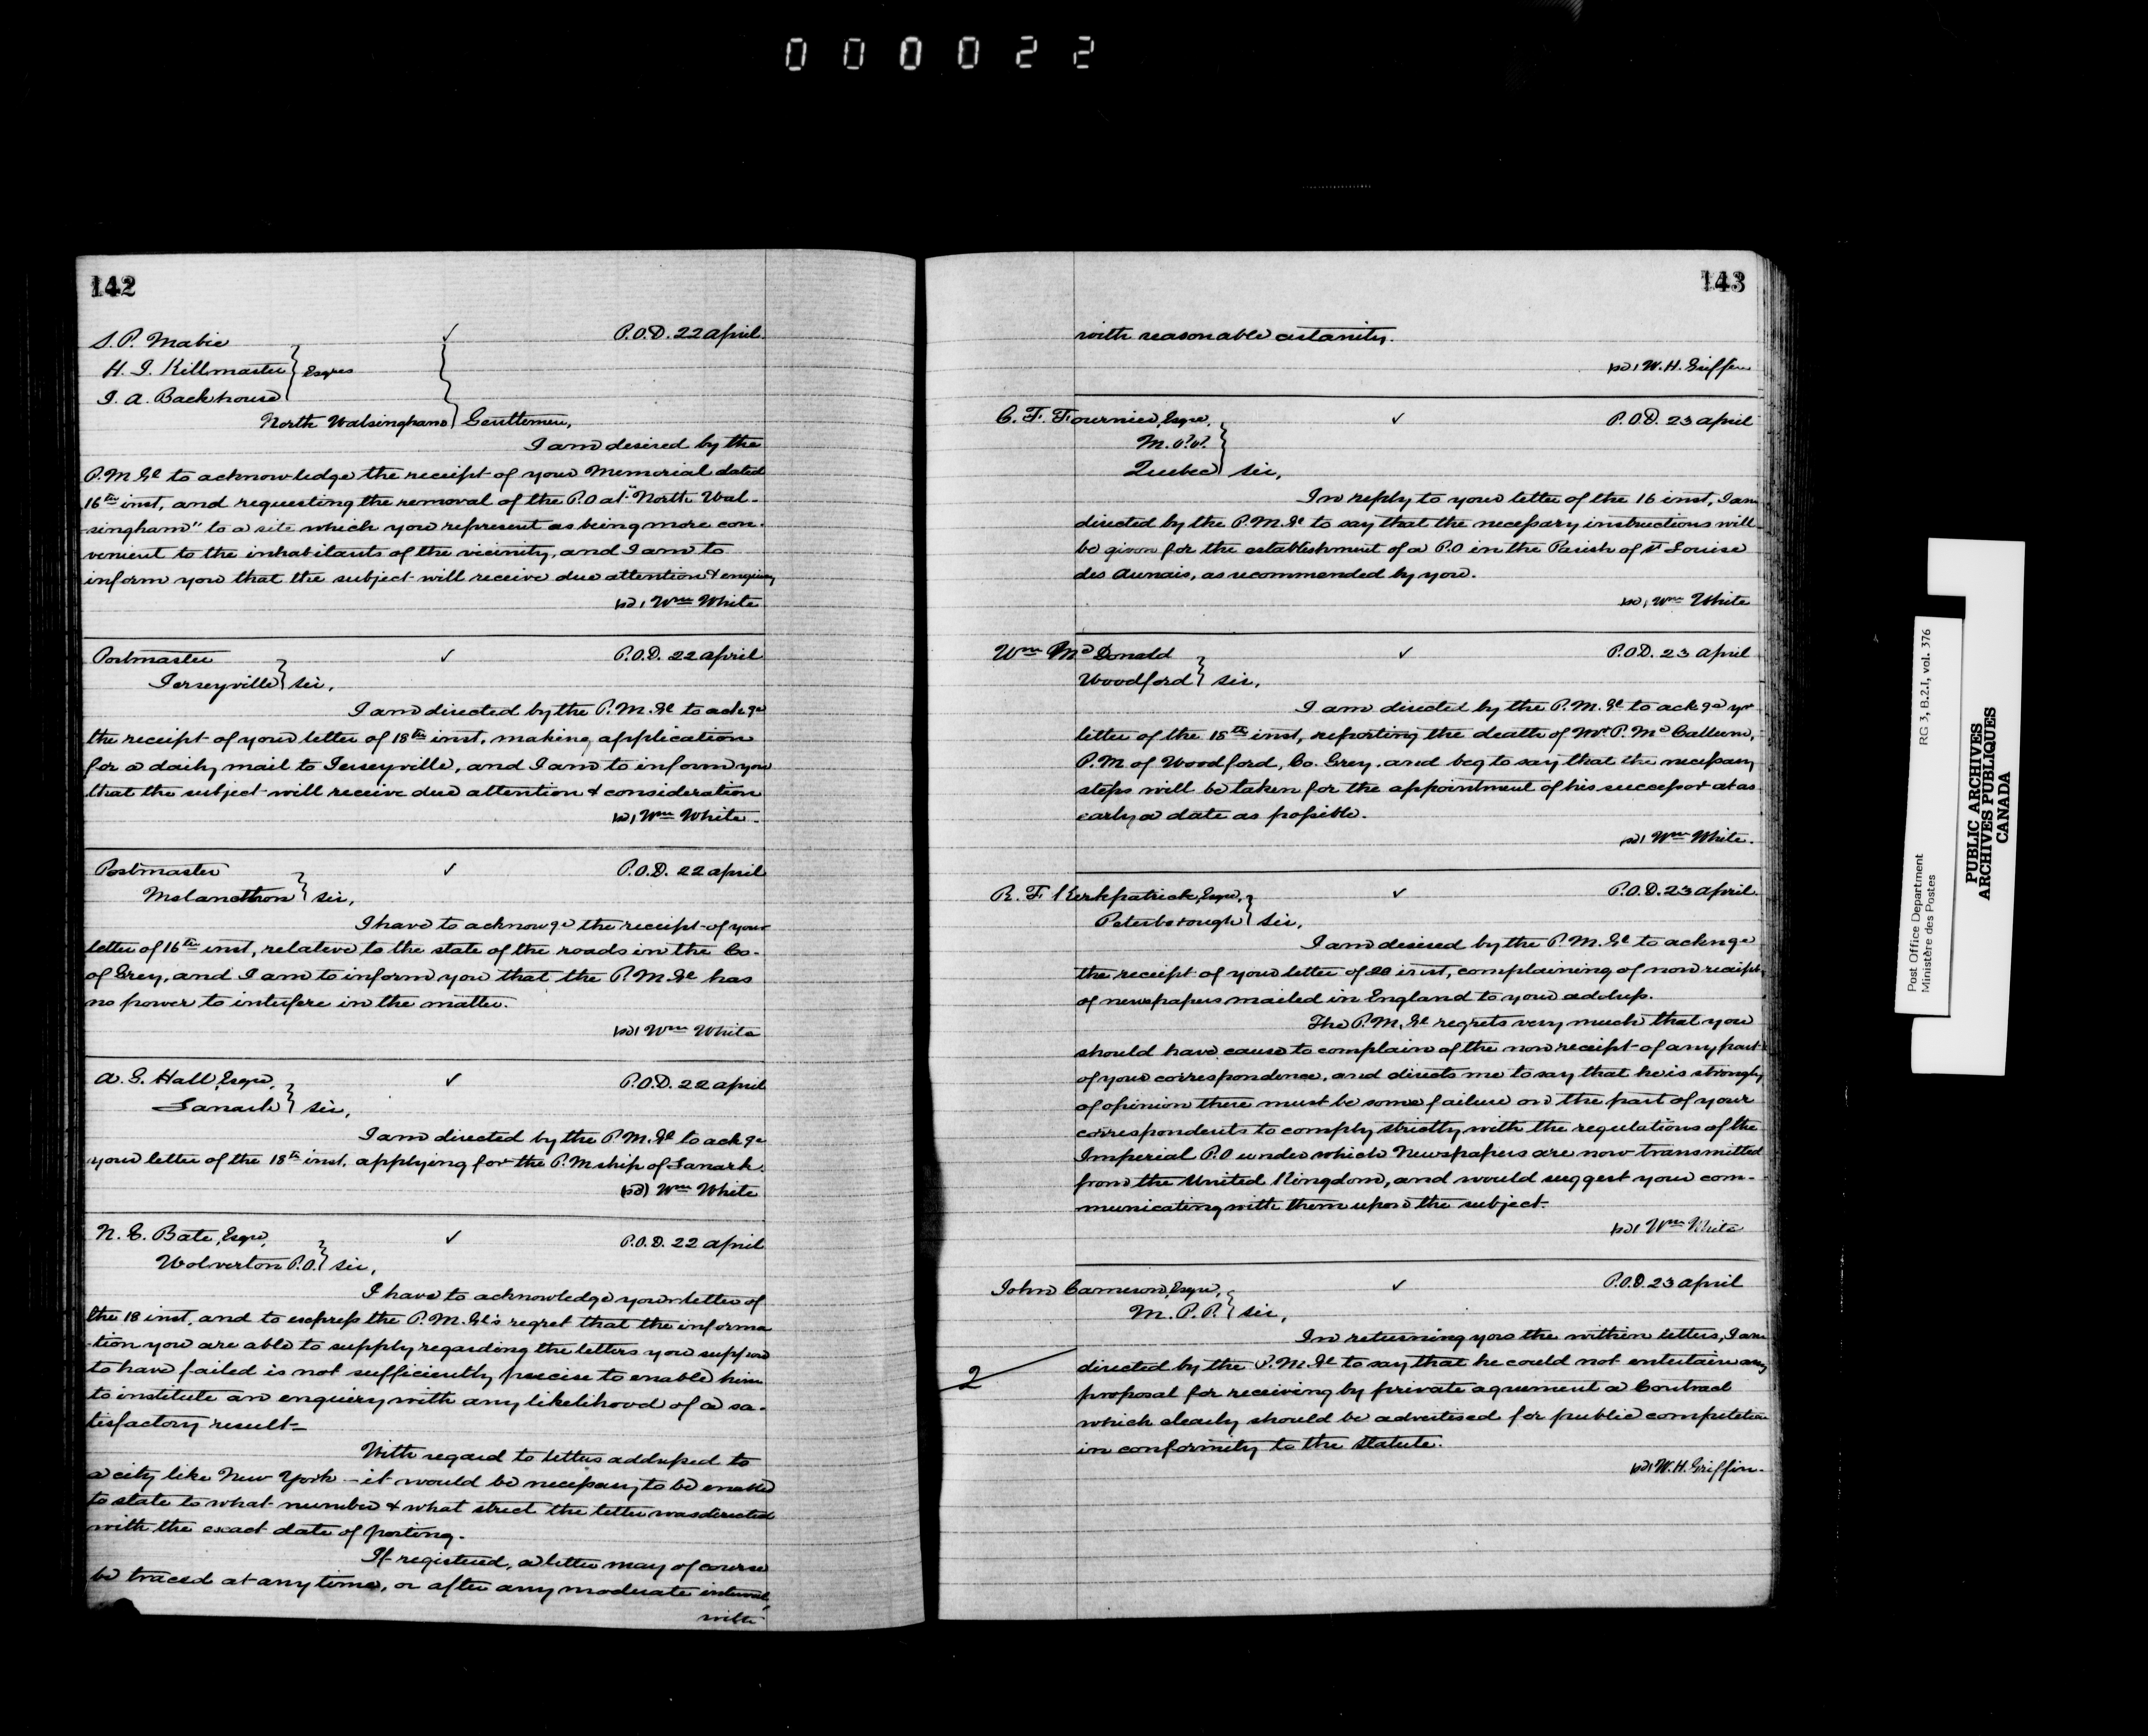 000022
142
S. P. Mabie ✓ P.O.D. 22 April
H. J. Killmaster } Esqres
J. A. Backhouse
North Walsingham } Gentlemen,
I am desired by the
P.M.Gl to acknowledge the receipt of your Memorial dated
16th inst, and requesting the removal of the P.O at "North Wal-
singham" to a site which you represent as being more con-
venient to the inhabitants of the vicinity, and I am to
inform you that the subject will receive due attention & enquiry
sd, Wm White
Postmaster ✓ P.O.D. 22 April
Jerseyville } Sir,
I am directed by the P.M.Gl to ackge
the receipt of your letter of 18th inst, making application
for a daily mail to Jerseyville, and I am to inform you
that the subject will receive due attention & consideration
sd, Wm White.
Postmaster ✓ P.O.D. 22 April
Melancthon } Sir,
I have to acknowge the receipt of your
letter of 16th inst, relative to the state of the roads in the Co.
of Grey, and I am to inform you that the P.M.Gl has
no power to interfere in the matter.
sd, Wm White
A. G. Hall, Esqre, ✓ P.O.D. 22 April
Lanark } Sir,
I am directed by the P.M.Gl to ackge
your letter of the 18th inst. applying for the P.Mship of Lanark.
sd) Wm White
N. C. Bate, Esqre, ✓ P.O.D. 22 April
Wolverton P.O. } Sir,
I have to acknowledge your letter of
the 18 inst. and to express the P.M.Gl's regret that the informa
-tion you are able to supply regarding the letters you suppose
to have failed is not sufficiently precise to enable him
to institute an enquiry with any likelihood of a sa-
tisfactory result.
With regard to letters addressed to
a city like New York - it would be necessary to be enabled
to state to what number & what street the letter was directed
with the exact date of posting.
If registered, a letter may of course
be traced at any time, or after any moderate interval,
with
143
with reasonable certainty.
sd, W. H. Griffin
C. F. Fournier, Esqre, ✓ P.O.D. 23 April
M.P.P.
Quebec } Sir,
In reply to your letter of the 16 inst, I am
directed by the P.M.Gl to say that the necessary instructions will
be given for the establishment of a P.O in the Parish of St Louise
des Aunais, as recommended by you.
sd, Wm White
Wm McDonald ✓ P.O.D. 23 April
Woodford } Sir,
I am directed by the P.M.Gl to ackge yr
letter of the 18th inst, reporting the death of Mr P. McCallum,
P.M of Woodford, Co. Grey, and beg to say that the necessary
steps will be taken for the appointment of his successor at as
early a date as possible.
sd, Wm White.
R. F. Kirkpatrick, Esqre, ✓ P.O.D. 23 April
Peterborough } Sir,
I am desired by the P.M.Gl to acknge
the receipt of your letter of 20 inst, complaining of non receipt
of newspapers mailed in England to your address.
The P.M.Gl regrets very much that you
should have cause to complain of the non receipt of any part
of your correspondence, and directs me to say that he is strongly
of opinion there must be some failure on the part of your
correspondents to comply strictly with the regulations of the
Imperial P.O under which Newspapers are now transmitted
from the United Kingdom, and would suggest your com-
municating with them upon the subject.
sd, Wm White
John Cameron, Esqre, ✓ P.O.D. 23 April
M.P.P. } Sir,
In returning you the within letters, I am
directed by the P.M.Gl to say that he could not entertain any
2
proposal for receiving by private agreement a Contract
which clearly should be advertised for public competition
in conformity to the Statute.
sd, W. H. Griffin.
Post Office Department RG 3, B.2.I, vol. 376
Ministère des Postes
PUBLIC ARCHIVES
ARCHIVES PUBLIQUES
CANADA